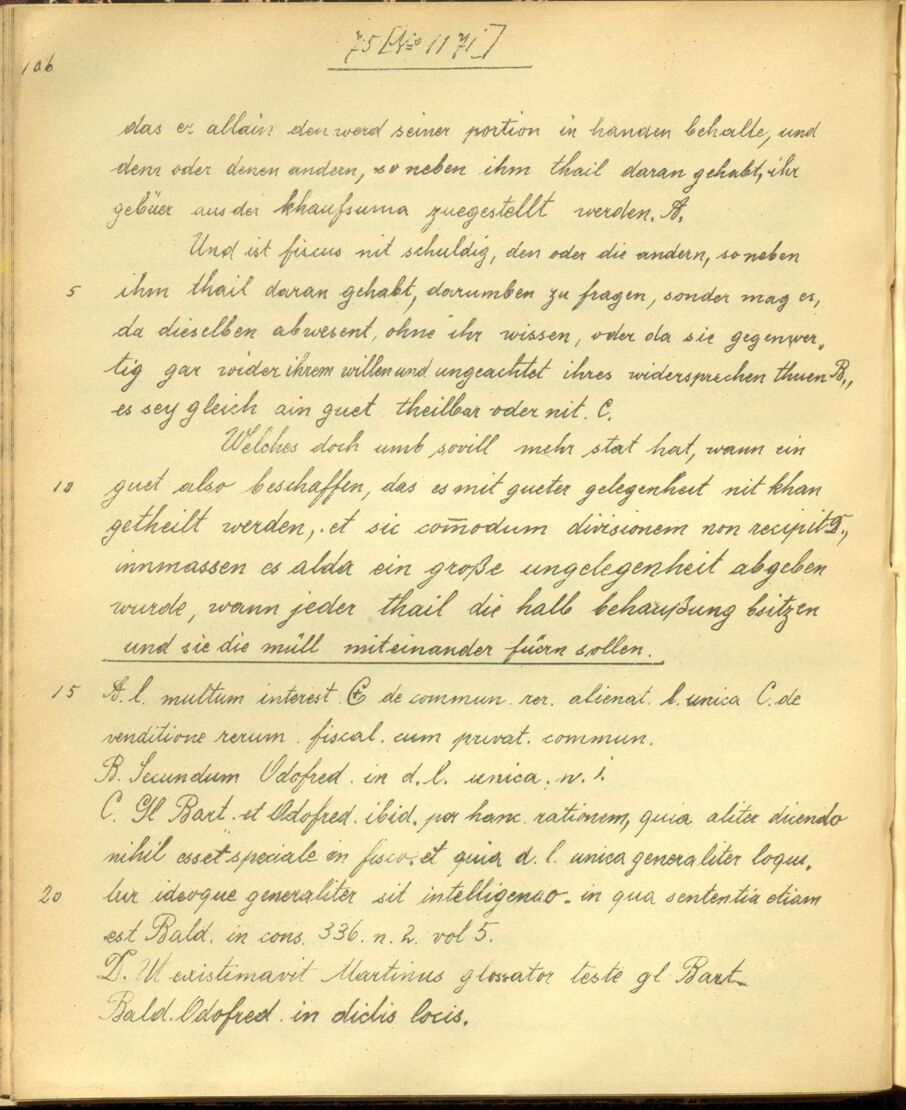 75 [No 1171]
106
das er allain den werd seiner portion in handen behalte, und
denr oder denen andern, so neben ihm thail daran gehabt, ihr
gebüer aus der khaufsuma zuegestellt werden. A.
Und ist fiscus nit schuldig, den oder die andern, so neben
5 ihm thail daran gehabt, darumben zu fragen, sonder mag es,
da dieselben abwesent, ohne ihr wissen, oder da sie gegenwer„
tig gar wider ihrem willen und ungeachtet ihres widersprechen thuen B.,
es sey gleich ain guet theilbar oder nit. C.
Welches doch umb sovill mehr stat hat, wann ein
10 guet also beschaffen, das es mit gueter gelegenheit nit khan
getheilt werden, et sic com̄odum divisionem non recipit D.,
innmassen es alda ein große ungelegenheit abgeben
wurde, wann jeder thail die halb behaußung bsitzen
und sie die müll miteinander füern sollen.
15 A. l. multum interest C de commun. rer. alienat. l. unica C. de
venditione rerum. fiscal. cum privat. commun.
B. Secundum Odofred. in d. l. unica. n. 1.
C. Gl Bart. et Odofred. ibid. per hanc rationem, quia aliter dicendo
nihil esset speciale in fisco. et quia d. l. unica generaliter loqui„
20 tur ideoque generaliter sit intelligendo. in qua sententia etiam
est Bald. in cons. 336. n. 2. vol 5.
D. Ut existimavit Martinus glossator teste gl Bart
Bald. Odofred. in dictis locis.